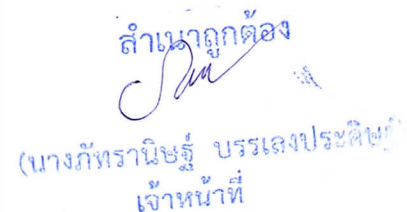 สำเนาถูกต้อง
(นางภัทรานิษฐ์ บรรเลงประดิษฐ์
เจ้าหน้าที่